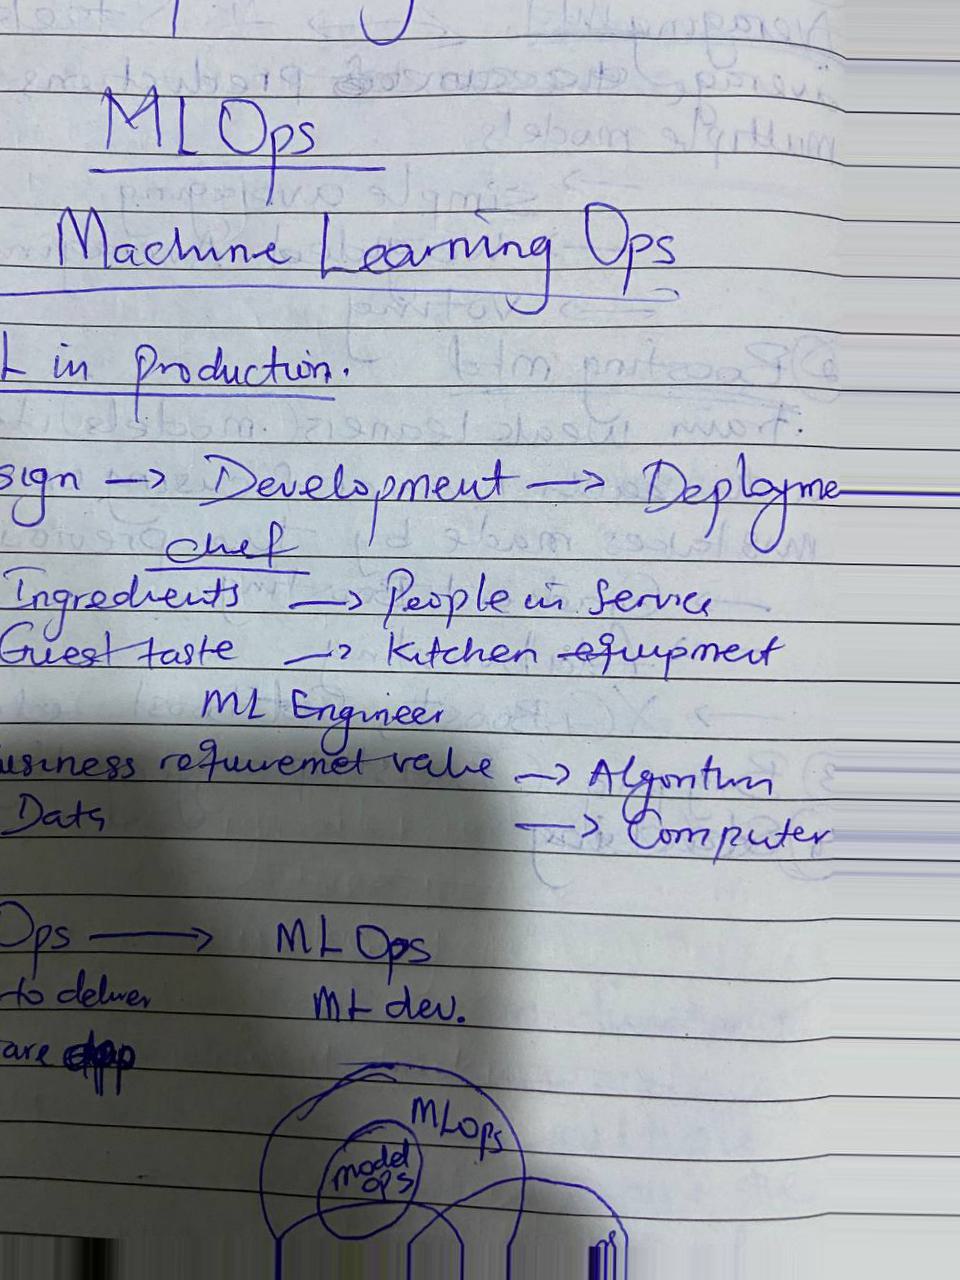 MLOps
Machine Learning Ops
L in production.
sign → Development → Deployme
chef
Ingredients → People in Service
Guest taste → Kitchen equipment
ML Engineer
usiness requiremet value → Algorithm
Data → Computer
Ops → MLOps
to deliver ML dev.
are app
MLOps
model
OPS